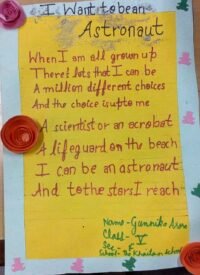 I Want to be an
Astronaut
When I am all grown up
There's lots that I can be
A million different choices
And the choice is upto me
A scientist or an acrobat
A lifeguard on the beach
I can be an astronaut
And to the stars I reach
Name- Gunnika Arora
Class- V
Sec-
School- The Khaitan School